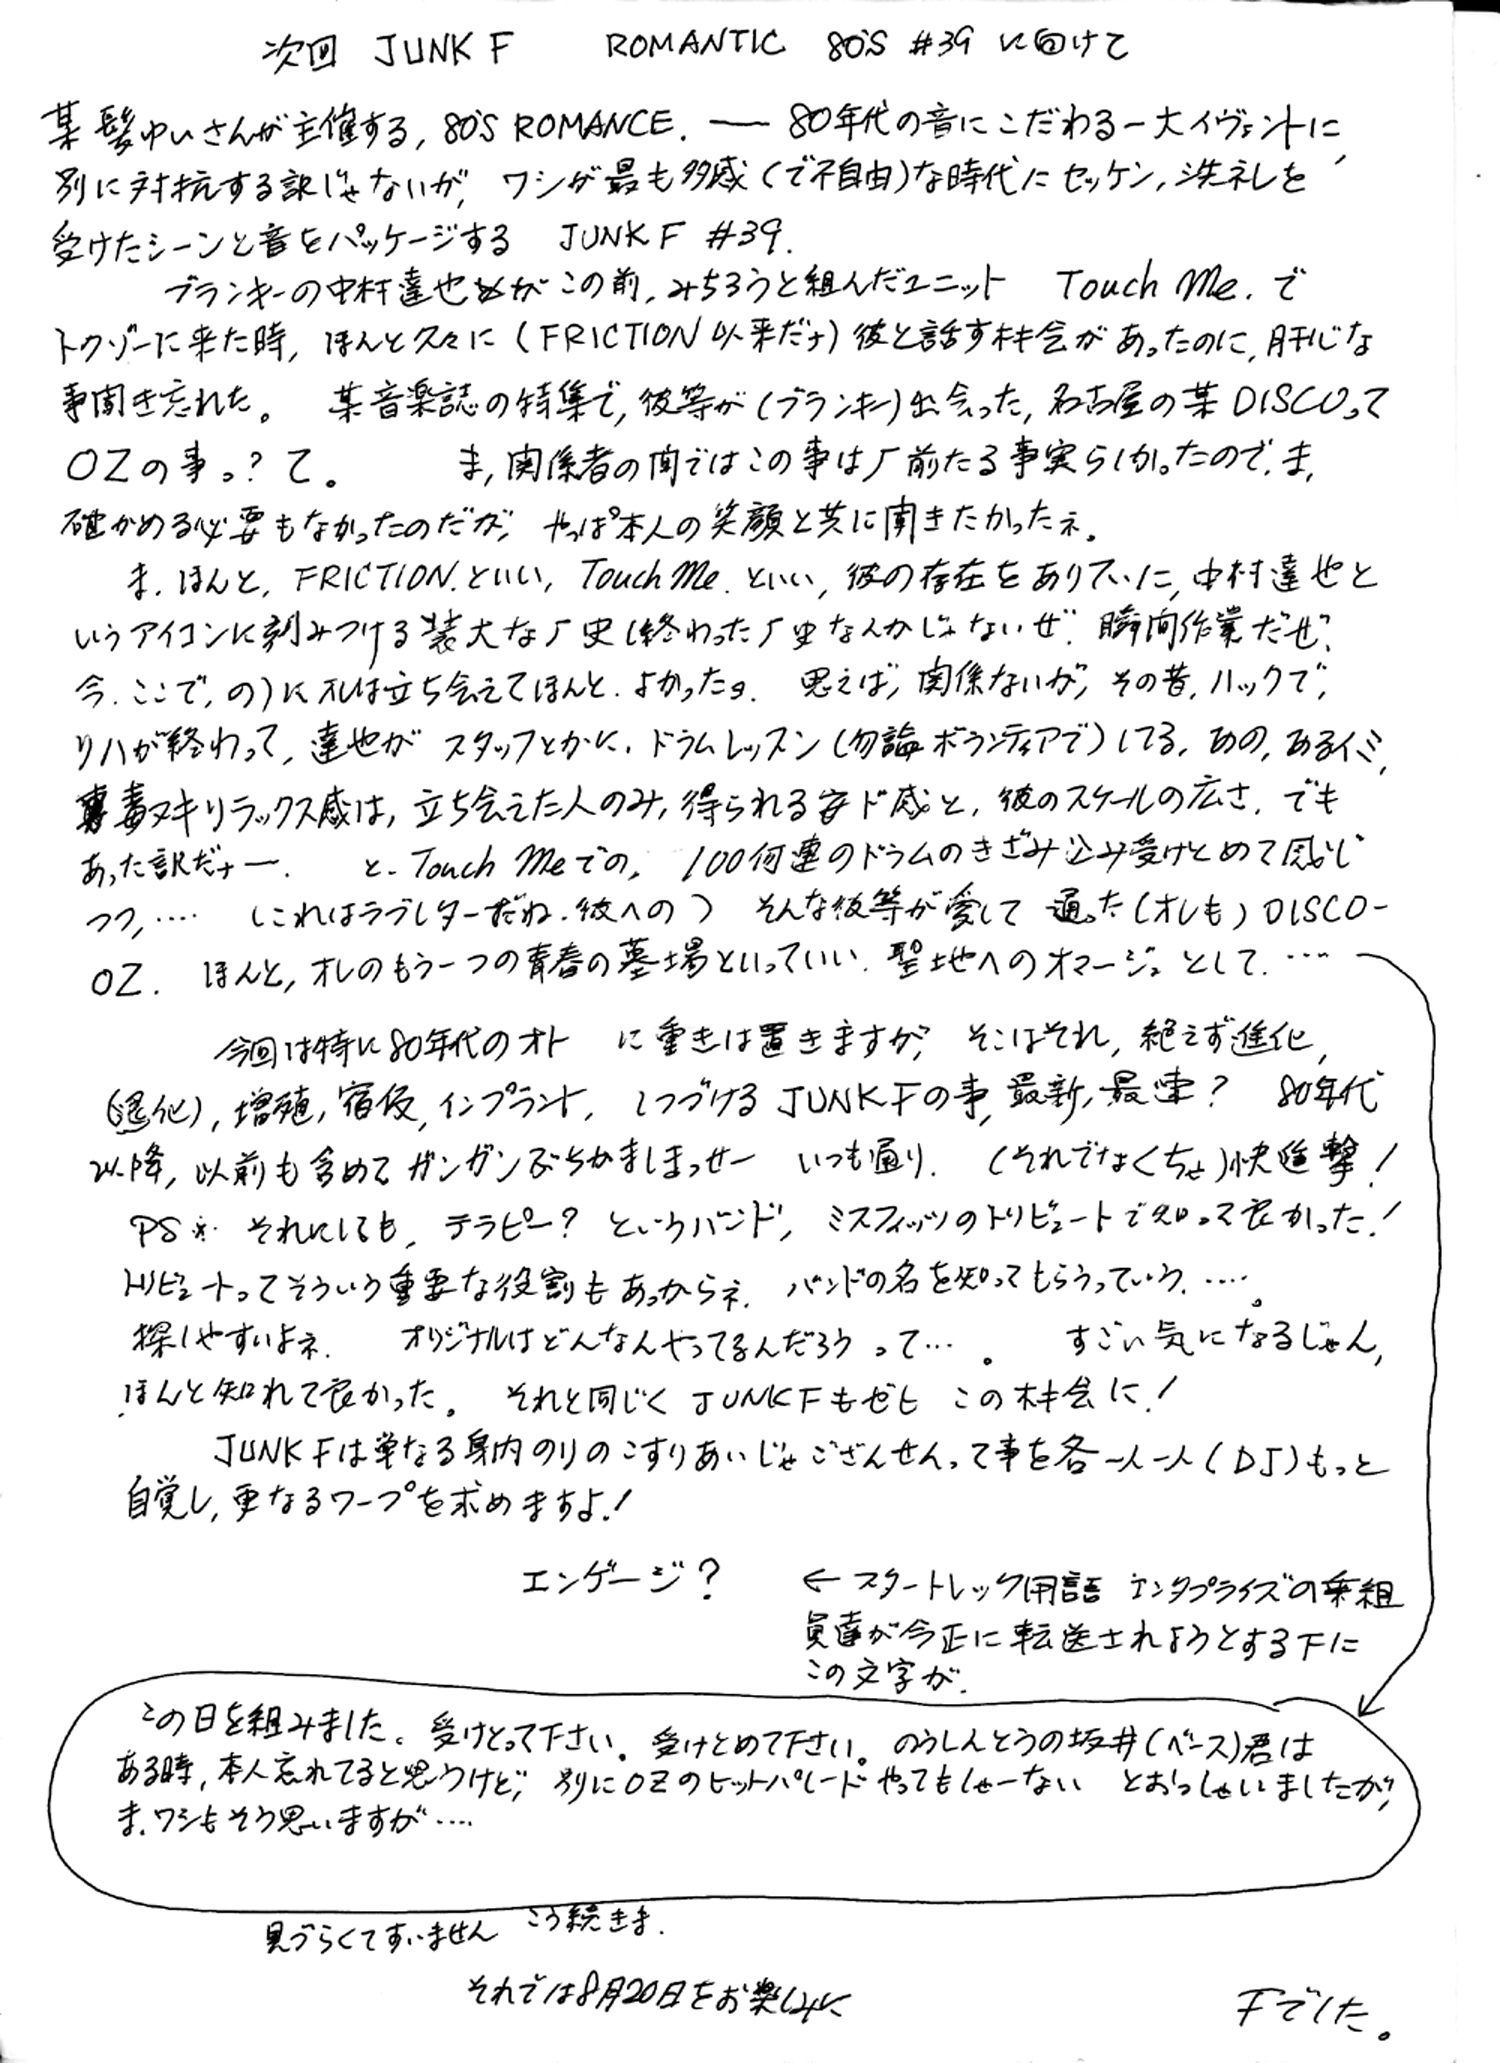 次回 JUNK F ROMANTIC 80'S #39 に向けて
某髪ゆいさんが主催する, 80'S ROMANCE. ── 80年代の音にこだわる一大イヴェントに,
別に対抗する訳じゃないが, ワシが最も多感(で不自由)な時代にセッケン, 洗ネレを
受けたシーンと音をパッケージする JUNK F #39.
ブランキーの中村達也がこの前, みちろうと組んだユニット Touch Me. で
トクゾーに来た時, ほんと久々に (FRICTION以来だナ) 彼と話す機会があったのに, 肝じな
事聞き忘れた。 某音楽誌の特集で, 彼等が(ブランキー)出会った, 名古屋の某DISCOって
OZの事っ? て。 ま, 関係者の間ではこの事は厂前たる事実らしかったので, ま,
確かめる必要もなかったのだが, やっぱ本人の笑顔と共に聞きたかったネ。
ま. ほんと, FRICTION. といい, Touch Me. といい, 彼の存在をありていに, 中村達也と
いうアイコンに刻みつける装大な厂史(終わった厂史なんかじゃないぜ. 瞬間作業だぜ,
今. ここで, の)にオレは立ち会えてほんと. よかったヨ. 思えば, 関係ないが, その昔, ハックで,
リハが終わって, 達也が スタッフとかに, ドラムレッスン(勿論ボランティアで)してる, あの, あるイミ,
毒ヌキリラックス感は, 立ち会えた人のみ, 得られる安ド感と, 彼のスケールの広さ, でも
あった訳だナー. と. Touch Meでの, 100何連のドラムのきざみ込み受けとめて感じ
つつ, .... (これはラブレターだね. 彼への) そんな彼等が愛して 通った(オレも) DISCO-
OZ. ほんと, オレのもう一つの青春の墓場といっていい. 聖地へのオマージュとして. ....
今回は特に80年代のオト に重きは置きますが, そこはそれ, 絶えず進化,
(退化), 増殖, 宿仮, インプラント, しつづける JUNK Fの事, 最新, 最速? 80年代
以降, 以前も含めてガンガンぶちかましまっせー いつも通り. (それでなくちゃ)快進撃!
PS※ それにしても, テラピー? というバンド, ミスフィッツのトリビュートで知って良かった!
トリビュートってそういう重要な役割もあっからネ. バンドの名を知ってもらうっていう. ....。
探しやすいよネ. オリジナルはどんなんやってるんだろうって...。 すごい気になるじゃん,
ほんと知れて良かった。 それと同じく JUNK Fもゼヒ この機会に!
JUNK Fは単なる身内のりのこすりあいじゃござんせんって事を各一人一人(DJ)もっと
自覚し, 更なるワープを求めますよ!
エンゲージ? ← スタートレック用語 エンタプライズの乗組
員達が今正に転送されようとする下に
この文字が.
この日を組みました。 受けとって下さい。 受けとめて下さい。 のうしんとうの坂井(ベース)君は
ある時, 本人忘れてると思うけど, 別にOZのヒットパレードやってもしゃーない とおっしゃいましたが,
ま. ワシもそう思いますが....
見づらくてすいません こう続きま.
それでは8月20日をお楽しみに
Fでした。